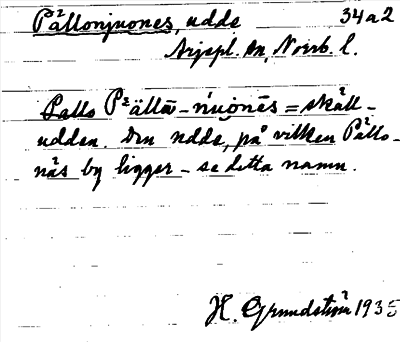 Pällonjuones, udde 34a2
Arjepl. sn, Norrb. l.
Lapska Pällō-njuonēs = skall-
udden. Den udde, på vilken Pällo-
näs by ligger - se detta namn.
H. Grundström 1935